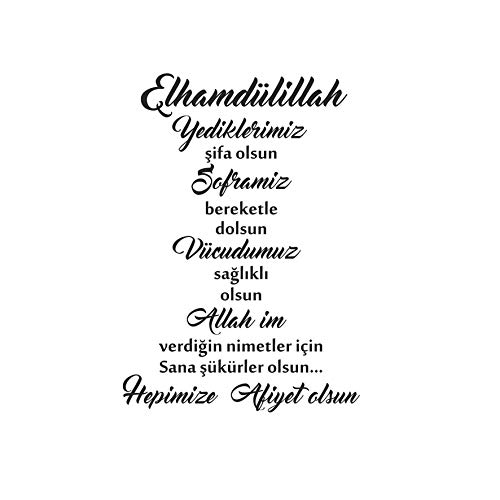 Elhamdülillah
Yediklerimiz
şifa olsun
Soframiz
bereketle
dolsun
Vücudumuz
sağlıklı
olsun
Allah im
verdiğin nimetler için
Sana şükürler olsun...
Hepimize Afiyet olsun